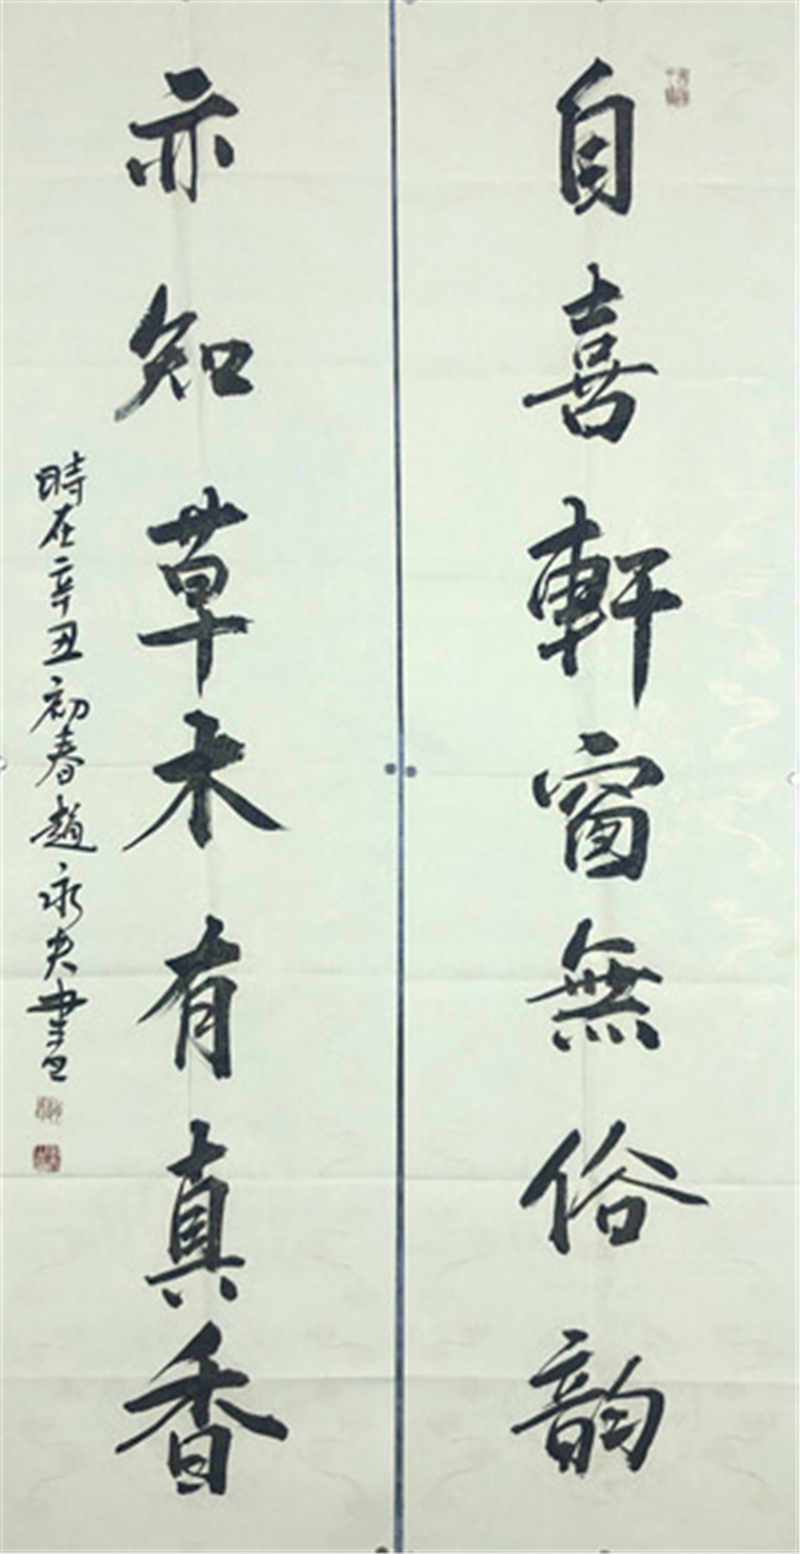 自喜軒窗無俗韵
亦知草木有真香
時在辛丑初春趙永夫書